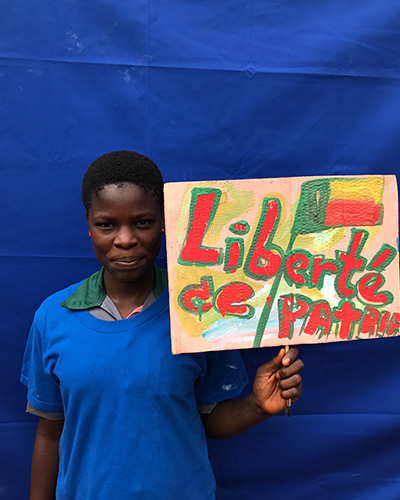 Liberté
de PATRIE